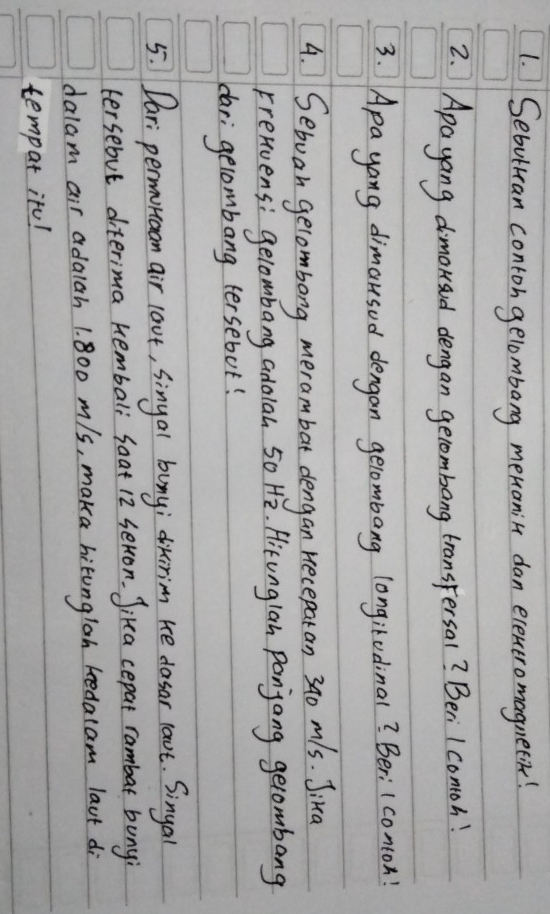 1. Sebutkan contoh gelombang mekanik dan elektromagnetik!
2. Apa yang dimaksud dengan gelombang transfersal? Beri 1 contoh!
3. Apa yang dimaksud dengan gelombang longitudinal? Beri 1 contoh!
4. Sebuah gelombang merambat dengan kecepatan 340 m/s. Jika
frekuensi gelombang adalah 50 Hz. Hitunglah panjang gelombang
dari gelombang tersebut!
5. Dari permukaan air laut, sinyal bunyi dikirim ke dasar laut. Sinyal
tersebut diterima kembali saat 12 sekon. Jika cepat rambat bunyi
dalam air adalah 1.800 m/s, maka hitunglah kedalam laut di
tempat itu!